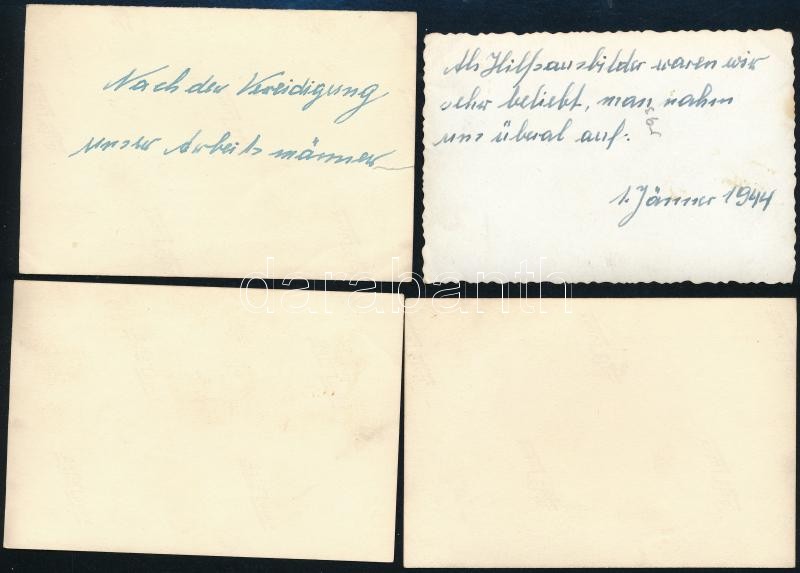 Nach der Vereidigung
unser Arbeitsmänner
Als Hilfsausbilder waren wir
sehr beliebt, man nahm
uns überal auf.
1. Jänner 1944
darabanth